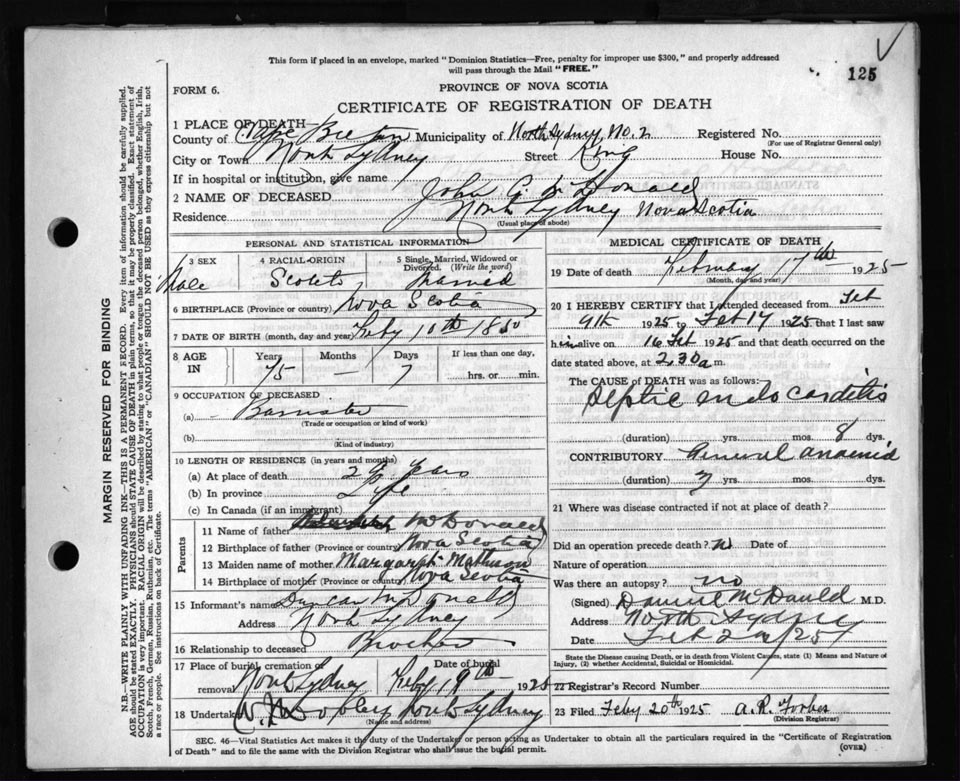 This form if placed in an envelope, marked "Dominion Statistics—Free, penalty for improper use $300," and properly addressed
will pass through the Mail "FREE."
125
FORM 6.
PROVINCE OF NOVA SCOTIA
CERTIFICATE OF REGISTRATION OF DEATH
1 PLACE OF DEATH
County of Cape Breton Municipality of North Sydney, No. 2 Registered No.
(For use of Registrar General only)
City or Town North Sydney Street King House No.
If in hospital or institution, give name
2 NAME OF DECEASED John G. McDonald
Residence North Sydney Nova Scotia
(Usual place of abode)
PERSONAL AND STATISTICAL INFORMATION
3 SEX Male
4 RACIAL ORIGIN Scotch
5 Single, Married, Widowed or Divorced. (Write the word) Married
6 BIRTHPLACE (Province or country) Nova Scotia
7 DATE OF BIRTH (month, day and year) Feby 10th 1850
8 AGE IN Years Months Days If less than one day,
75 — 7 hrs. or min.
9 OCCUPATION OF DECEASED
(a) Barrister
(Trade or occupation or kind of work)
(b)
(Kind of industry)
10 LENGTH OF RESIDENCE (in years and months)
(a) At place of death Years
(b) In province Life
(c) In Canada (if an immigrant)
Parents
11 Name of father McDonald
12 Birthplace of father (Province or country) Nova Scotia
13 Maiden name of mother Margaret Matheson
14 Birthplace of mother (Province or country) Nova Scotia
15 Informant's name Duncan McDonald
Address North Sydney
16 Relationship to deceased Brother
17 Place of burial, cremation or removal North Sydney Date of burial Feby 19th 1925
18 Undertaker North Sydney
(Name and address)
MEDICAL CERTIFICATE OF DEATH
19 Date of death February 17th 1925
(Month, day and year)
20 I HEREBY CERTIFY that I attended deceased from Feb
9th 1925 to Feb 17 1925 that I last saw
him alive on 16 Feb 1925 and that death occurred on the
date stated above, at 2.30 a m.
The CAUSE of DEATH was as follows:
Septic endo carditis
(duration) yrs. mos. 8 dys.
CONTRIBUTORY General anaemia
(duration) yrs. mos. dys.
21 Where was disease contracted if not at place of death?
Did an operation precede death? Date of
Nature of operation
Was there an autopsy? no
(Signed) Daniel McDonald M.D.
Address North Sydney
Date Feb 25
State the Disease causing Death, or in death from Violent Causes, state (1) Means and Nature of
Injury, (2) whether Accidental, Suicidal or Homicidal.
22 Registrar's Record Number
23 Filed Feby 20th 1925 A. R. Forbes
(Division Registrar)
SEC. 46—Vital Statistics Act makes it the duty of the Undertaker or person acting as Undertaker to obtain all the particulars required in the "Certificate of Registration
of Death" and to file the same with the Division Registrar who shall issue the burial permit.
(OVER)
MARGIN RESERVED FOR BINDING
N.B.—WRITE PLAINLY WITH UNFADING INK—THIS IS A PERMANENT RECORD. Every item of information should be carefully supplied.
AGE should be stated EXACTLY. PHYSICIANS should STATE CAUSE OF DEATH in plain terms, so that it may be properly classified. Exact statement of
OCCUPATION is very important. RACIAL ORIGIN will be described by stating to what people or tongue the deceased person belonged, whether English, Irish,
Scotch, French, German, Russian, Ruthenian, etc. The terms "AMERICAN" or "CANADIAN" SHOULD NOT BE USED as they express citizenship but not
a race or people. See instructions on back of Certificate.